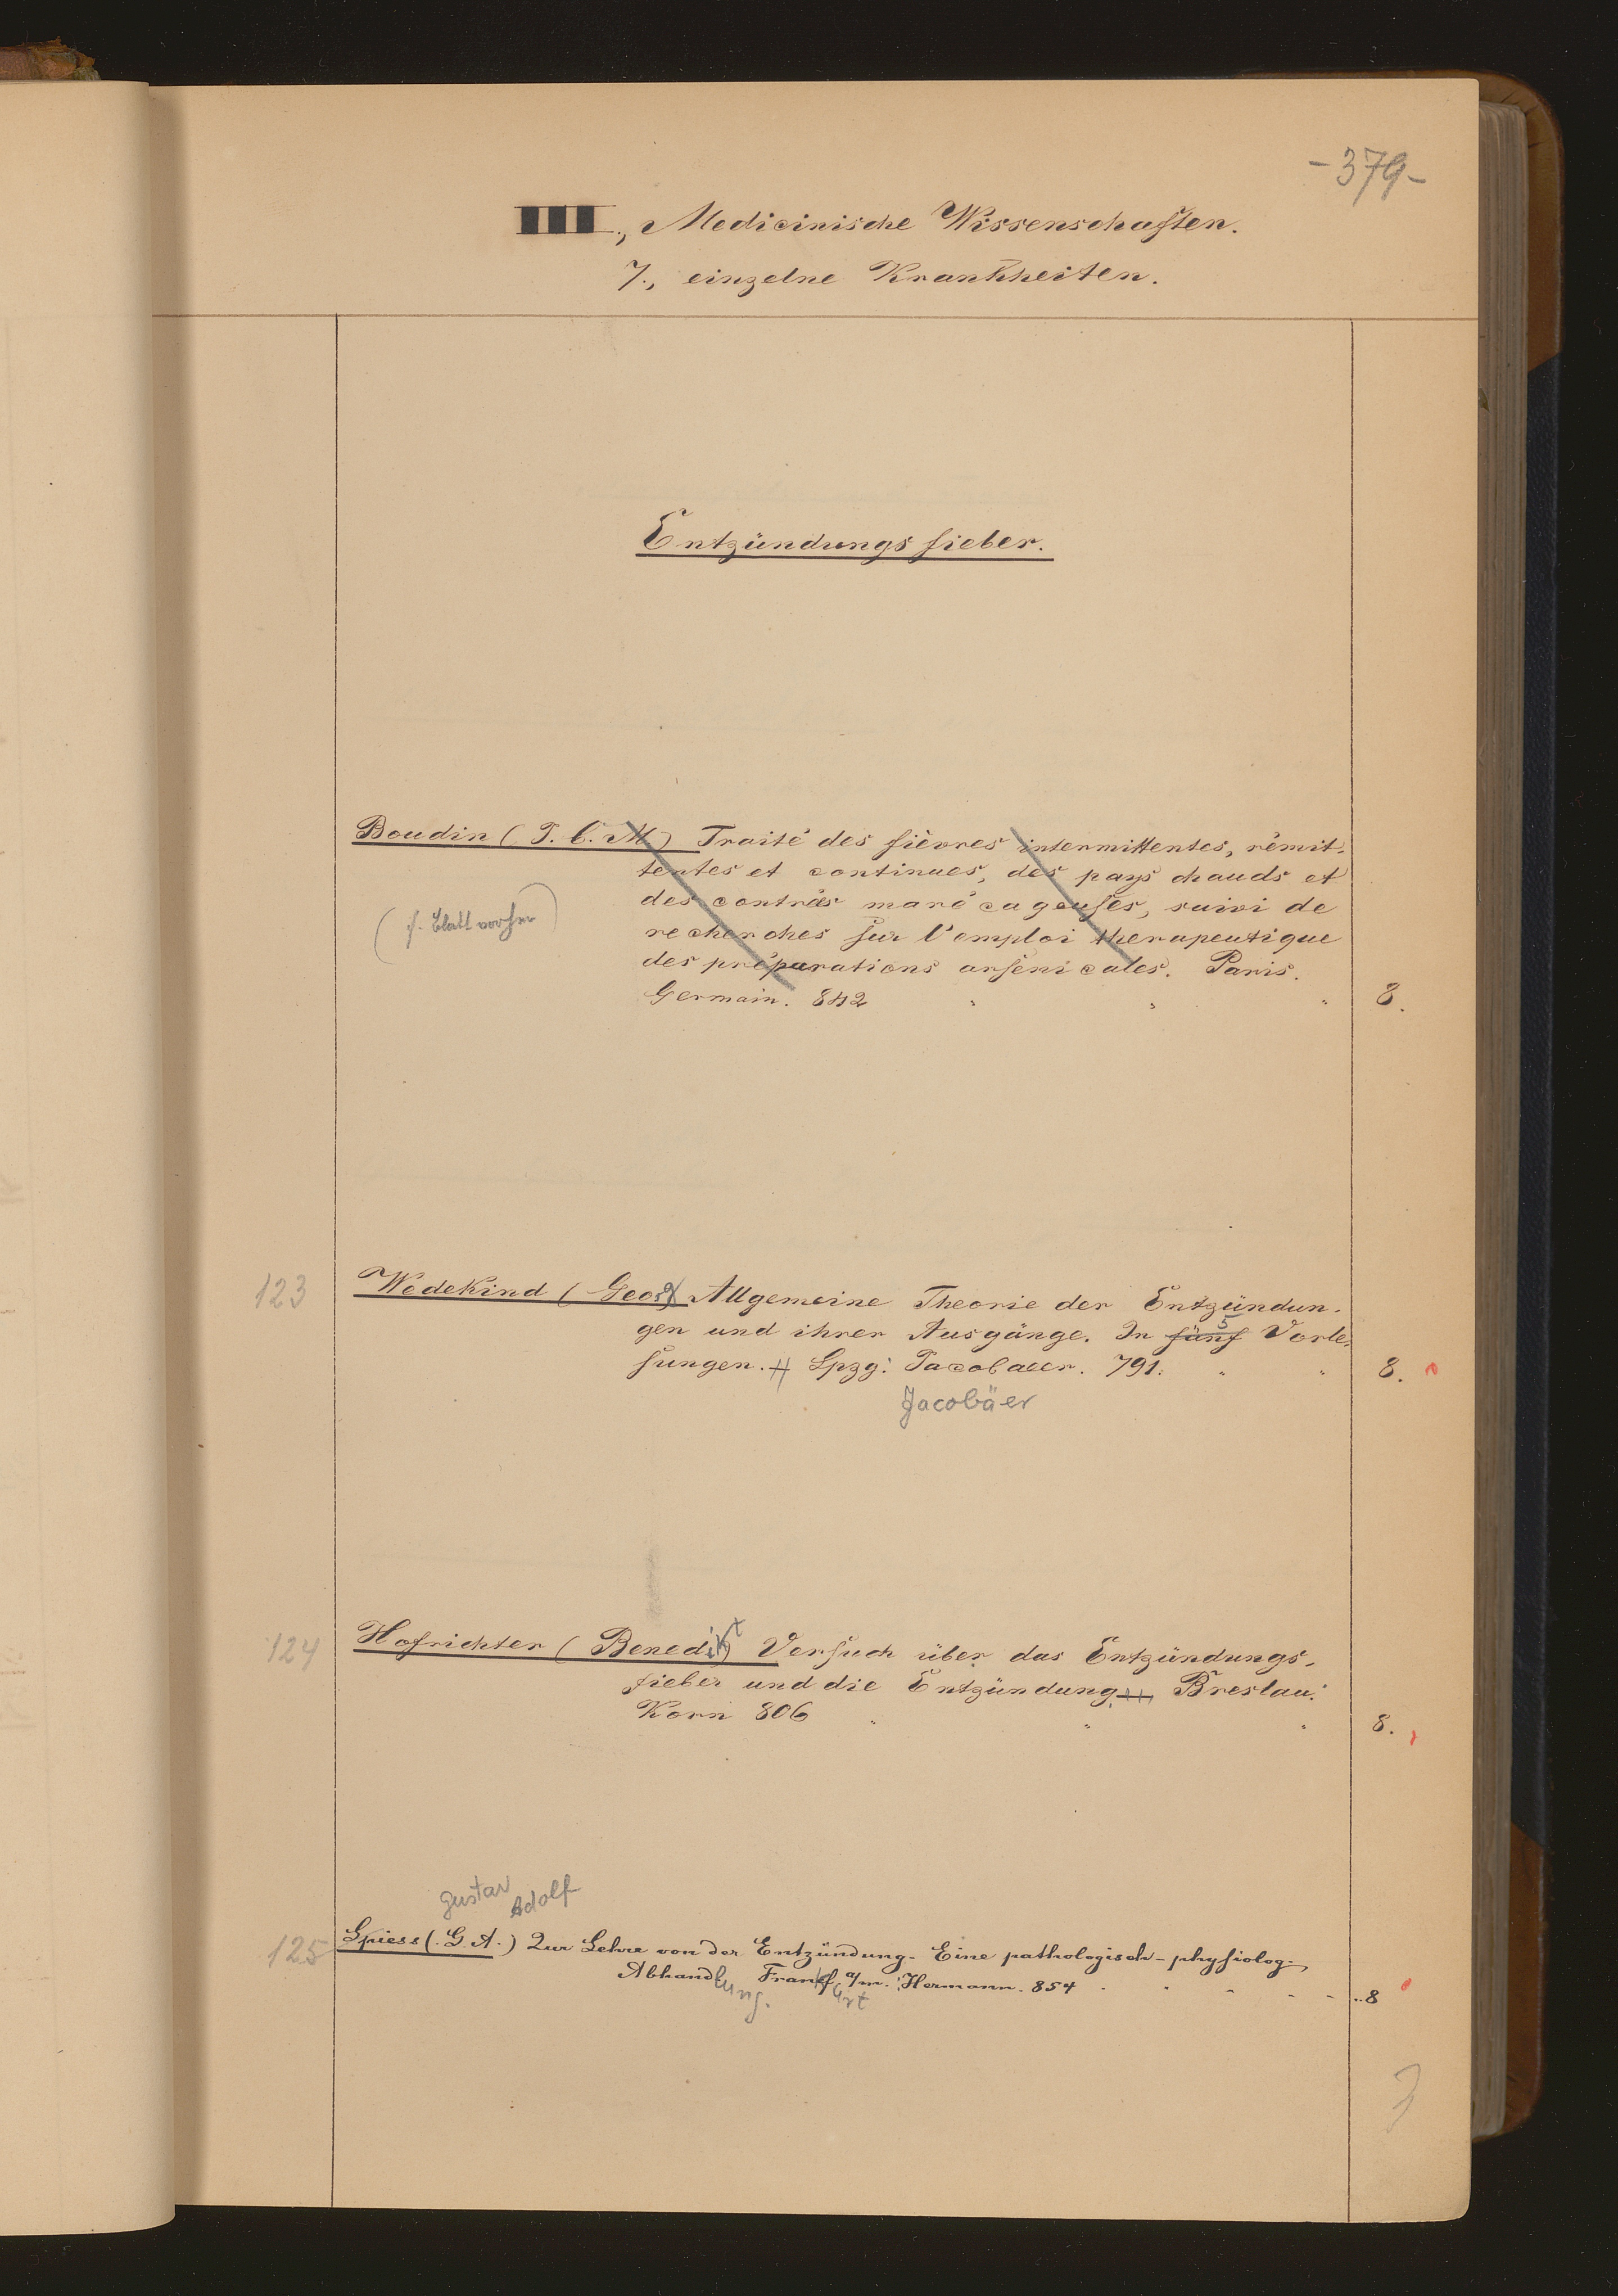 -379-
III., Medicinische Wissenschaften.
7., einzelne Krankheiten.
Entzündungsfieber.
Boudin (J. C. M.) Traité des fièvres intermittentes, rémit-
tentes et continues, des pays chauds et
des contrées marécageuses, suivi de
(s. Blatt vorher)
recherches sur l'emploi therapeutique
des préparations arsénicales. Paris.
Germain. 842 " " " 8.
123 Wedekind (Georg) Allgemeine Theorie der Entzündun-
gen und ihrer Ausgänge. In fünf 5 Vorle-
sungen. Lpzg: Jacobaeer. 791. " " 8.
Jacobäer
124 Hofrichter (Benedikt) Versuch über das Entzündungs-
fieber und die Entzündung. Breslau:
Korn 806 " " " 8.
Gustav Adolf
125 Spiess (G. A.) Zur Lehre von der Entzündung. Eine pathologisch-physiolog.
Abhandlung. Frankfurt a/m.: Hermann. 854 8